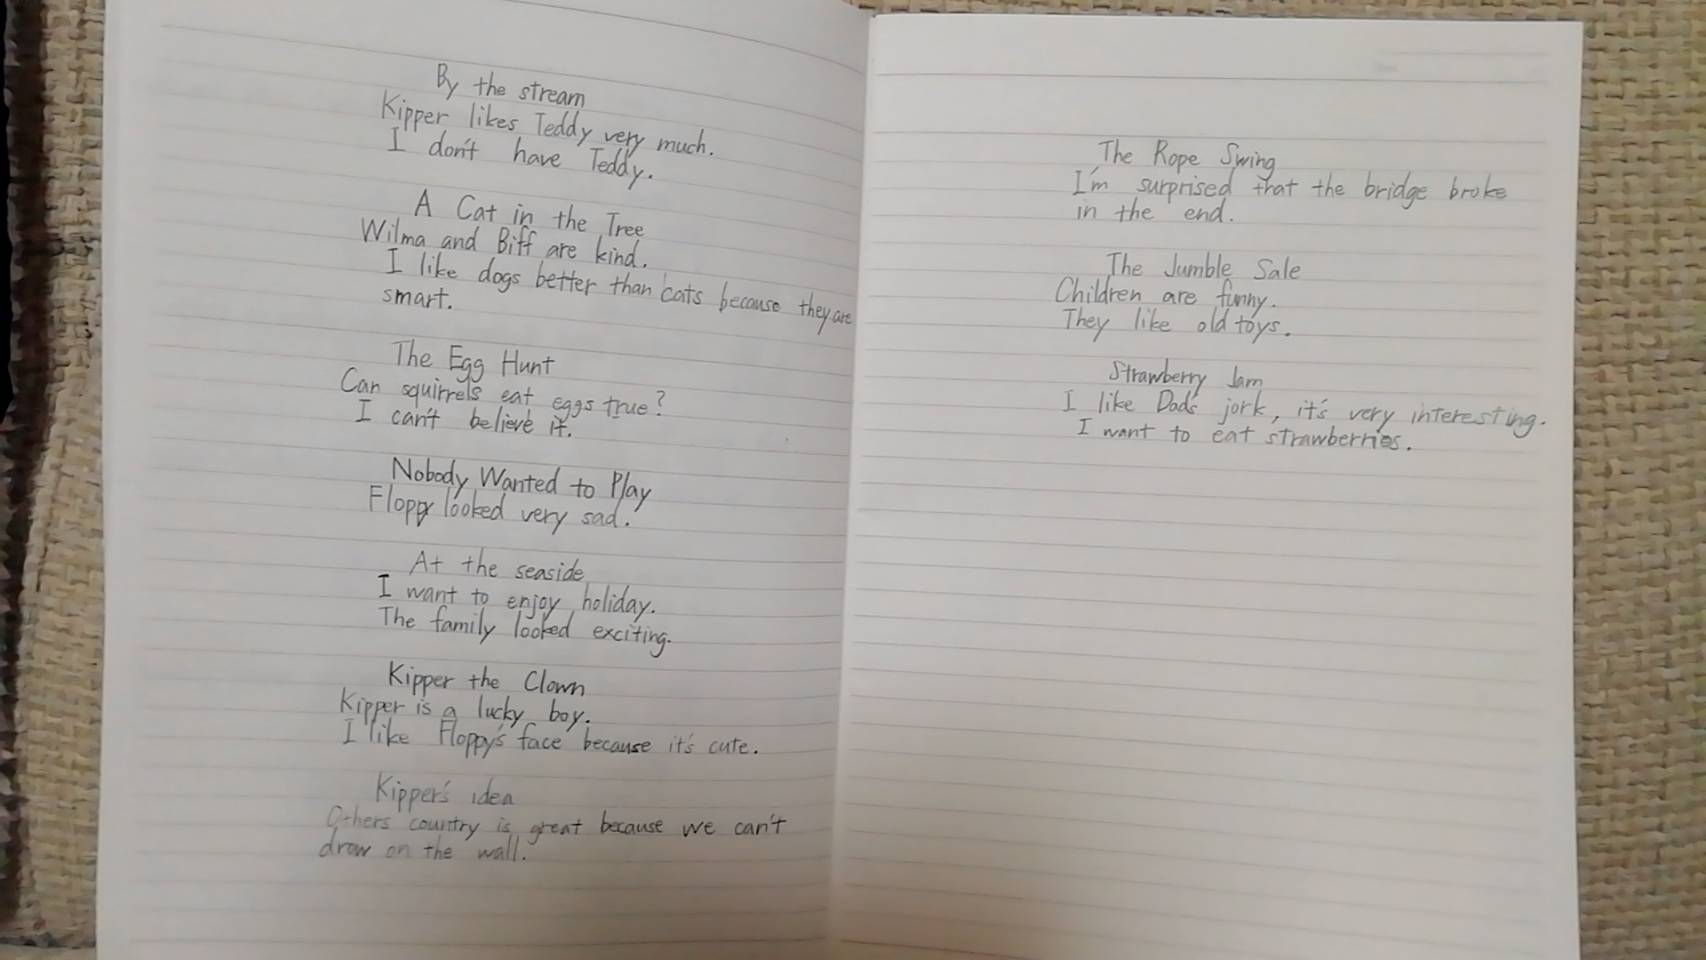 By the stream
Kipper likes Teddy very much.
I don't have Teddy.
A Cat in the Tree
Wilma and Biff are kind.
I like dogs better than cats because they are
smart.
The Egg Hunt
Can squirrels eat eggs true?
I can't believe it.
Nobody Wanted to Play
Floppy looked very sad.
At the seaside
I want to enjoy holiday.
The family looked exciting.
Kipper the Clown
Kipper is a lucky boy.
I like Floppy's face because it's cute.
Kipper's idea
Others country is great because we can't
draw on the wall.
The Rope Swing
I'm surprised that the bridge broke
in the end.
The Jumble Sale
Children are funny.
They like old toys.
Strawberry Jam
I like Dad's jork, it's very interesting.
I want to eat strawberries.